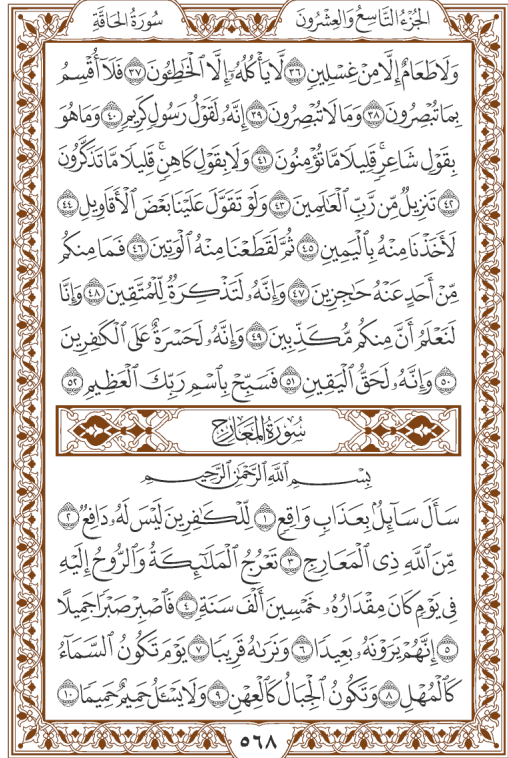 الجُزْءُ التَّاسِعُ وَالعِشْرُونَ سُورَةُ الحَاقَّةِ
وَلَا طَعَامٌ إِلَّا مِنْ غِسْلِينٍ ٣٦ لَّا يَأْكُلُهُۥٓ إِلَّا ٱلْخَٰطِـُٔونَ ٣٧ فَلَآ أُقْسِمُ
بِمَا تُبْصِرُونَ ٣٨ وَمَا لَا تُبْصِرُونَ ٣٩ إِنَّهُۥ لَقَوْلُ رَسُولٍ كَرِيمٍ ٤٠ وَمَا هُوَ
بِقَوْلِ شَاعِرٍۚ قَلِيلًا مَّا تُؤْمِنُونَ ٤١ وَلَا بِقَوْلِ كَاهِنٍۚ قَلِيلًا مَّا تَذَكَّرُونَ
٤٢ تَنزِيلٌ مِّن رَّبِّ ٱلْعَٰلَمِينَ ٤٣ وَلَوْ تَقَوَّلَ عَلَيْنَا بَعْضَ ٱلْأَقَاوِيلِ ٤٤
لَأَخَذْنَا مِنْهُ بِٱلْيَمِينِ ٤٥ ثُمَّ لَقَطَعْنَا مِنْهُ ٱلْوَتِينَ ٤٦ فَمَا مِنكُم
مِّنْ أَحَدٍ عَنْهُ حَٰجِزِينَ ٤٧ وَإِنَّهُۥ لَتَذْكِرَةٌ لِّلْمُتَّقِينَ ٤٨ وَإِنَّا
لَنَعْلَمُ أَنَّ مِنكُم مُّكَذِّبِينَ ٤٩ وَإِنَّهُۥ لَحَسْرَةٌ عَلَى ٱلْكَٰفِرِينَ
٥٠ وَإِنَّهُۥ لَحَقُّ ٱلْيَقِينِ ٥١ فَسَبِّحْ بِٱسْمِ رَبِّكَ ٱلْعَظِيمِ ٥٢
سُورَةُ المَعَارِجِ
بِسْمِ ٱللَّهِ ٱلرَّحْمَٰنِ ٱلرَّحِيمِ
سَأَلَ سَآئِلٌۢ بِعَذَابٍ وَاقِعٍ ١ لِّلْكَٰفِرِينَ لَيْسَ لَهُۥ دَافِعٌ ٢
مِّنَ ٱللَّهِ ذِى ٱلْمَعَارِجِ ٣ تَعْرُجُ ٱلْمَلَٰٓئِكَةُ وَٱلرُّوحُ إِلَيْهِ
فِى يَوْمٍ كَانَ مِقْدَارُهُۥ خَمْسِينَ أَلْفَ سَنَةٍ ٤ فَٱصْبِرْ صَبْرًا جَمِيلًا
٥ إِنَّهُمْ يَرَوْنَهُۥ بَعِيدًا ٦ وَنَرَىٰهُ قَرِيبًا ٧ يَوْمَ تَكُونُ ٱلسَّمَآءُ
كَٱلْمُهْلِ ٨ وَتَكُونُ ٱلْجِبَالُ كَٱلْعِهْنِ ٩ وَلَا يَسْـَٔلُ حَمِيمٌ حَمِيمًا ١٠
٥٦٨